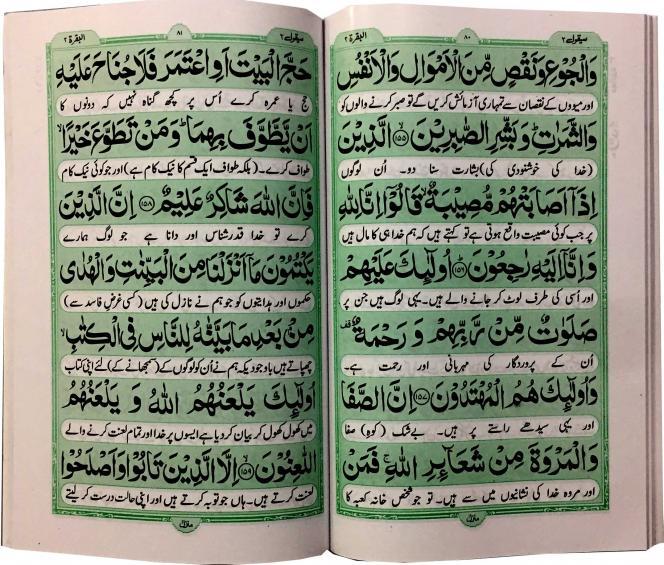 سیقول ٢ ٨٠ البقرة ٢
وَالْجُوْعِ وَنَقْصٍ مِّنَ الْاَمْوَالِ وَالْاَنْفُسِ
اور میووں کے نقصان سے تمہاری آزمائش کریں گے تو صبر کرنے والوں کو
وَالثَّمَرٰتِ وَبَشِّرِ الصّٰبِرِيْنَ ۙ‏﴿۱۵۵﴾ الَّذِيْنَ
(خدا کی خوشنودی کی) بشارت سنا دو۔ اُن لوگوں
اِذَاۤ اَصَابَتْهُمْ مُّصِيْبَةٌ ۙ قَالُوْٓا اِنَّا لِلّٰهِ
پر جب کوئی مصیبت واقع ہوتی ہے تو کہتے ہیں کہ ہم خدا ہی کا مال ہیں
وَاِنَّآ اِلَيْهِ رٰجِعُوْنَ ؕ‏﴿۱۵۶﴾ اُولٰٓئِكَ عَلَيْهِمْ
اور اُسی کی طرف لوٹ کر جانے والے ہیں۔ یہی لوگ ہیں جن پر
صَلَوٰتٌ مِّنْ رَّبِّهِمْ وَرَحْمَةٌ ۟ قف
اُن کے پروردگار کی مہربانی اور رحمت ہے۔
وَاُولٰٓئِكَ هُمُ الْمُهْتَدُوْنَ ‏﴿۱۵۷﴾ اِنَّ الصَّفَا
اور یہی سیدھے راستے پر ہیں۔ بے شک (کوہ) صفا
وَالْمَرْوَةَ مِنْ شَعَآئِرِ اللّٰهِ ۚ فَمَنْ
اور مروہ خدا کی نشانیوں میں سے ہیں۔ تو جو شخص خانہ کعبہ کا
منزل
سیقول ٢ ٨١ البقرة ٢
حَجَّ الْبَيْتَ اَوِ اعْتَمَرَ فَلَا جُنَاحَ عَلَيْهِ
حج یا عمرہ کرے اُس پر کچھ گناہ نہیں کہ دونوں کا
اَنْ يَّطَّوَّفَ بِهِمَا ؕ وَمَنْ تَطَوَّعَ خَيْرًا ۙ
طواف کرے۔ (بلکہ طواف ایک قسم کا نیک کام ہے) اور جو کوئی نیک کام
فَاِنَّ اللّٰهَ شَاكِرٌ عَلِيْمٌ ‏﴿۱۵۸﴾ اِنَّ الَّذِيْنَ
کرے تو خدا قدر شناس اور دانا ہے جو لوگ ہمارے
يَكْتُمُوْنَ مَآ اَنْزَلْنَا مِنَ الْبَيِّنٰتِ وَالْهُدٰى
حکموں اور ہدایتوں کو جو ہم نے نازل کی ہیں (کسی غرض فاسد سے)
مِنْ بَعْدِ مَا بَيَّنّٰهُ لِلنَّاسِ فِى الْكِتٰبِ ۙ
چھپاتے ہیں باوجودیکہ ہم نے اُن کو لوگوں کے (سمجھانے کے) لئے اپنی کتاب
اُولٰٓئِكَ يَلْعَنُهُمُ اللّٰهُ وَيَلْعَنُهُمُ
میں کھول کھول کر بیان کر دیا ہے ایسوں پر خدا اور تمام لعنت کرنے والے
اللّٰعِنُوْنَ ۙ‏﴿۱۵۹﴾ اِلَّا الَّذِيْنَ تَابُوْا وَاَصْلَحُوْا
لعنت کرتے ہیں۔ ہاں جو توبہ کرتے ہیں اور اپنی حالت درست کر لیتے
منزل